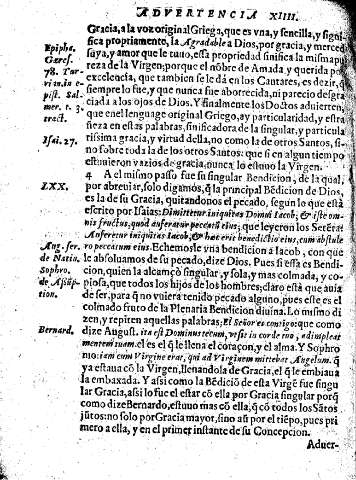 ADVERTENCIA XIIII.
Gracia, a la voz original Griega, que es vna, y sencilla, y signi
fica propriamente, la Agradable a Dios, por gracia, y merced
suya, y amor que le tuuo, esta propriedad sinifica la misma pu
reza de la Virgen; porque el nõbre de Amada, y querida por
excelencia, que tambien se le dá en los Cantares, es dezir, q̃
siempre lo fue, y que nunca fue aborrecida, ni parecio desgra
ciada a los ojos de Dios. Y finalmente los Doctos aduierten,
que en el lenguage original Griego, ay particularidad, y estra
ñeza en estas palabras, sinificadora de la singular, y particula
rissima gracia, y virtud della, no como la de otros Santos, si-
no sobre toda la de los otros Santos: que si en algun tiempo
estuuieron vazios de gracia, nunca lo estuuo la Virgen.
Epipha.
Geres.
78. Tur-
rian. in e
pist. Sal-
mer. t. 3.
tract.
Isai. 27.
4 A el mismo passo fue su singular Bendicion, de la qual,
por abreuiar, solo digamos, q̃ la principal Bẽdicion de Dios,
es la de su Gracia, quitandonos el pecado, segun lo que está
escrito por Isaias: Dimittetur iniquitas Domui Iacob, & iste om-
nis fructus, quod auferatur peccatũ eius, que leyeron los Setẽta:
Auferetur iniquitas Iacob, & hæc erit benedictio eius, cum abstule
ro peccatum eius. Echemosle vna bendicion a Iacob, con que
le absoluamos de su pecado, dize Dios. Pues si esta es Bendi-
cion, quien la alcançò singular, y sola, y mas colmada, y co-
piosa, que todos los hijos de los hombres; claro està que auia
de ser, para q̃ no vuiera tenido pecado alguno, pues este es el
colmado fruto de la Plenaria Bendicion diuina. Lo mismo di-
zen, y repiten aquellas palabras; El Señor es contigo: que como
dize August. ita est Dominus tecum, vt sit in corde tuo, adimpleat
mentem tuam. el es el q̃ llena el coraçon, y el alma. Y Sophro
nio: iam cum Virgine erat, qui ad Virginem mittebat Angelum. q̃
ya estaua cõ la Virgen, llenandola de Gracia, el q̃ le embiaua
la embaxada. Y assi como la Bẽdiciõ de esta Virgẽ fue singu
lar Gracia, assi lo fue el estar cõ ella por Gracia singular porq̃
como dize Bernardo, estuuo mas cõ ella, q̃ cõ todos los Sãtos
jũtos: no solo por Gracia mayor, sino aũ por el tiẽpo, pues pri
mero a ella, y en el primer instante de su Concepcion.
LXX.
Aug. ser.
de Natiu.
Sophro.
de Assũp
tion.
Bernard.
Aduer-